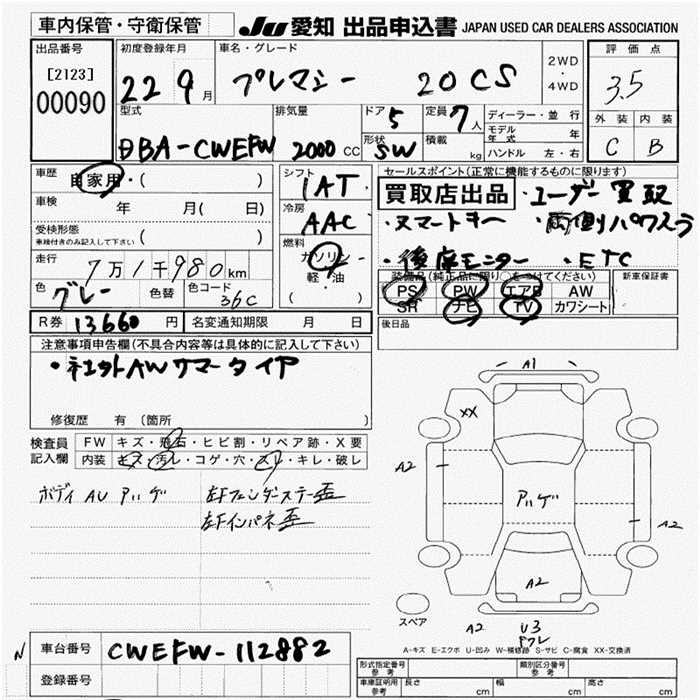 車内保管・守衛保管
JU 愛知 出品申込書 JAPAN USED CAR DEALERS ASSOCIATION
出品番号
[2123]
00090
初度登録年月
22 9月
車名・グレード
プレマシー 20CS
2WD
・
4WD
評価点
3.5
外装 内装
C B
型式
DBA-CWEFW
排気量
2000 CC
ドア
5
定員
7人
形状
SW
積載
kg
ディーラー・並行
モデル年式 年
ハンドル 左・右
車歴
自家用・( )
車検
年 月( 日)
受検形態
車検付きのみ記入して下さい ( )
走行
7万1千980km
色
グレー
色替
色コード
36C
シフト
1AT
冷房
AAC
燃料
ガソリン
軽・油
( )
セールスポイント(正常に機能するものに限ります)
買取店出品 ・ユーザー買取
・スマートキー ・両側パワスラ
・後席モニター ・ETC
装備品(純正品に限り○をつけてください)
新車保証書
PS PW エアB AW
SR ナビ TV カワシート
後日品
R券 13660円
名変通知期限 月 日
注意事項申告欄(不具合内容等は具体的に記入して下さい)
・社外AWサマータイヤ
修復歴 有 (箇所 )
検査員
記入欄
FW キズ・飛石・ヒビ割・リペア跡・X要
内装 キズ・汚レ・コゲ・穴・スレ・キレ・破レ
ボディAUアバゲ 左Fフェンダーステー歪
左Fインパネ歪
A1
XX
A2
アバゲ
A2
A2
スペア
A2
U3
ワレ
A-キズ E-エクボ U-凹み W-補修跡 S-サビ C-腐食 XX-交換済
N
車台番号
CWEFW-112882
登録番号
形式指定番号
参考
類別区分番号
参考
車庫証明用
参考
長さ cm
幅 cm
高さ cm